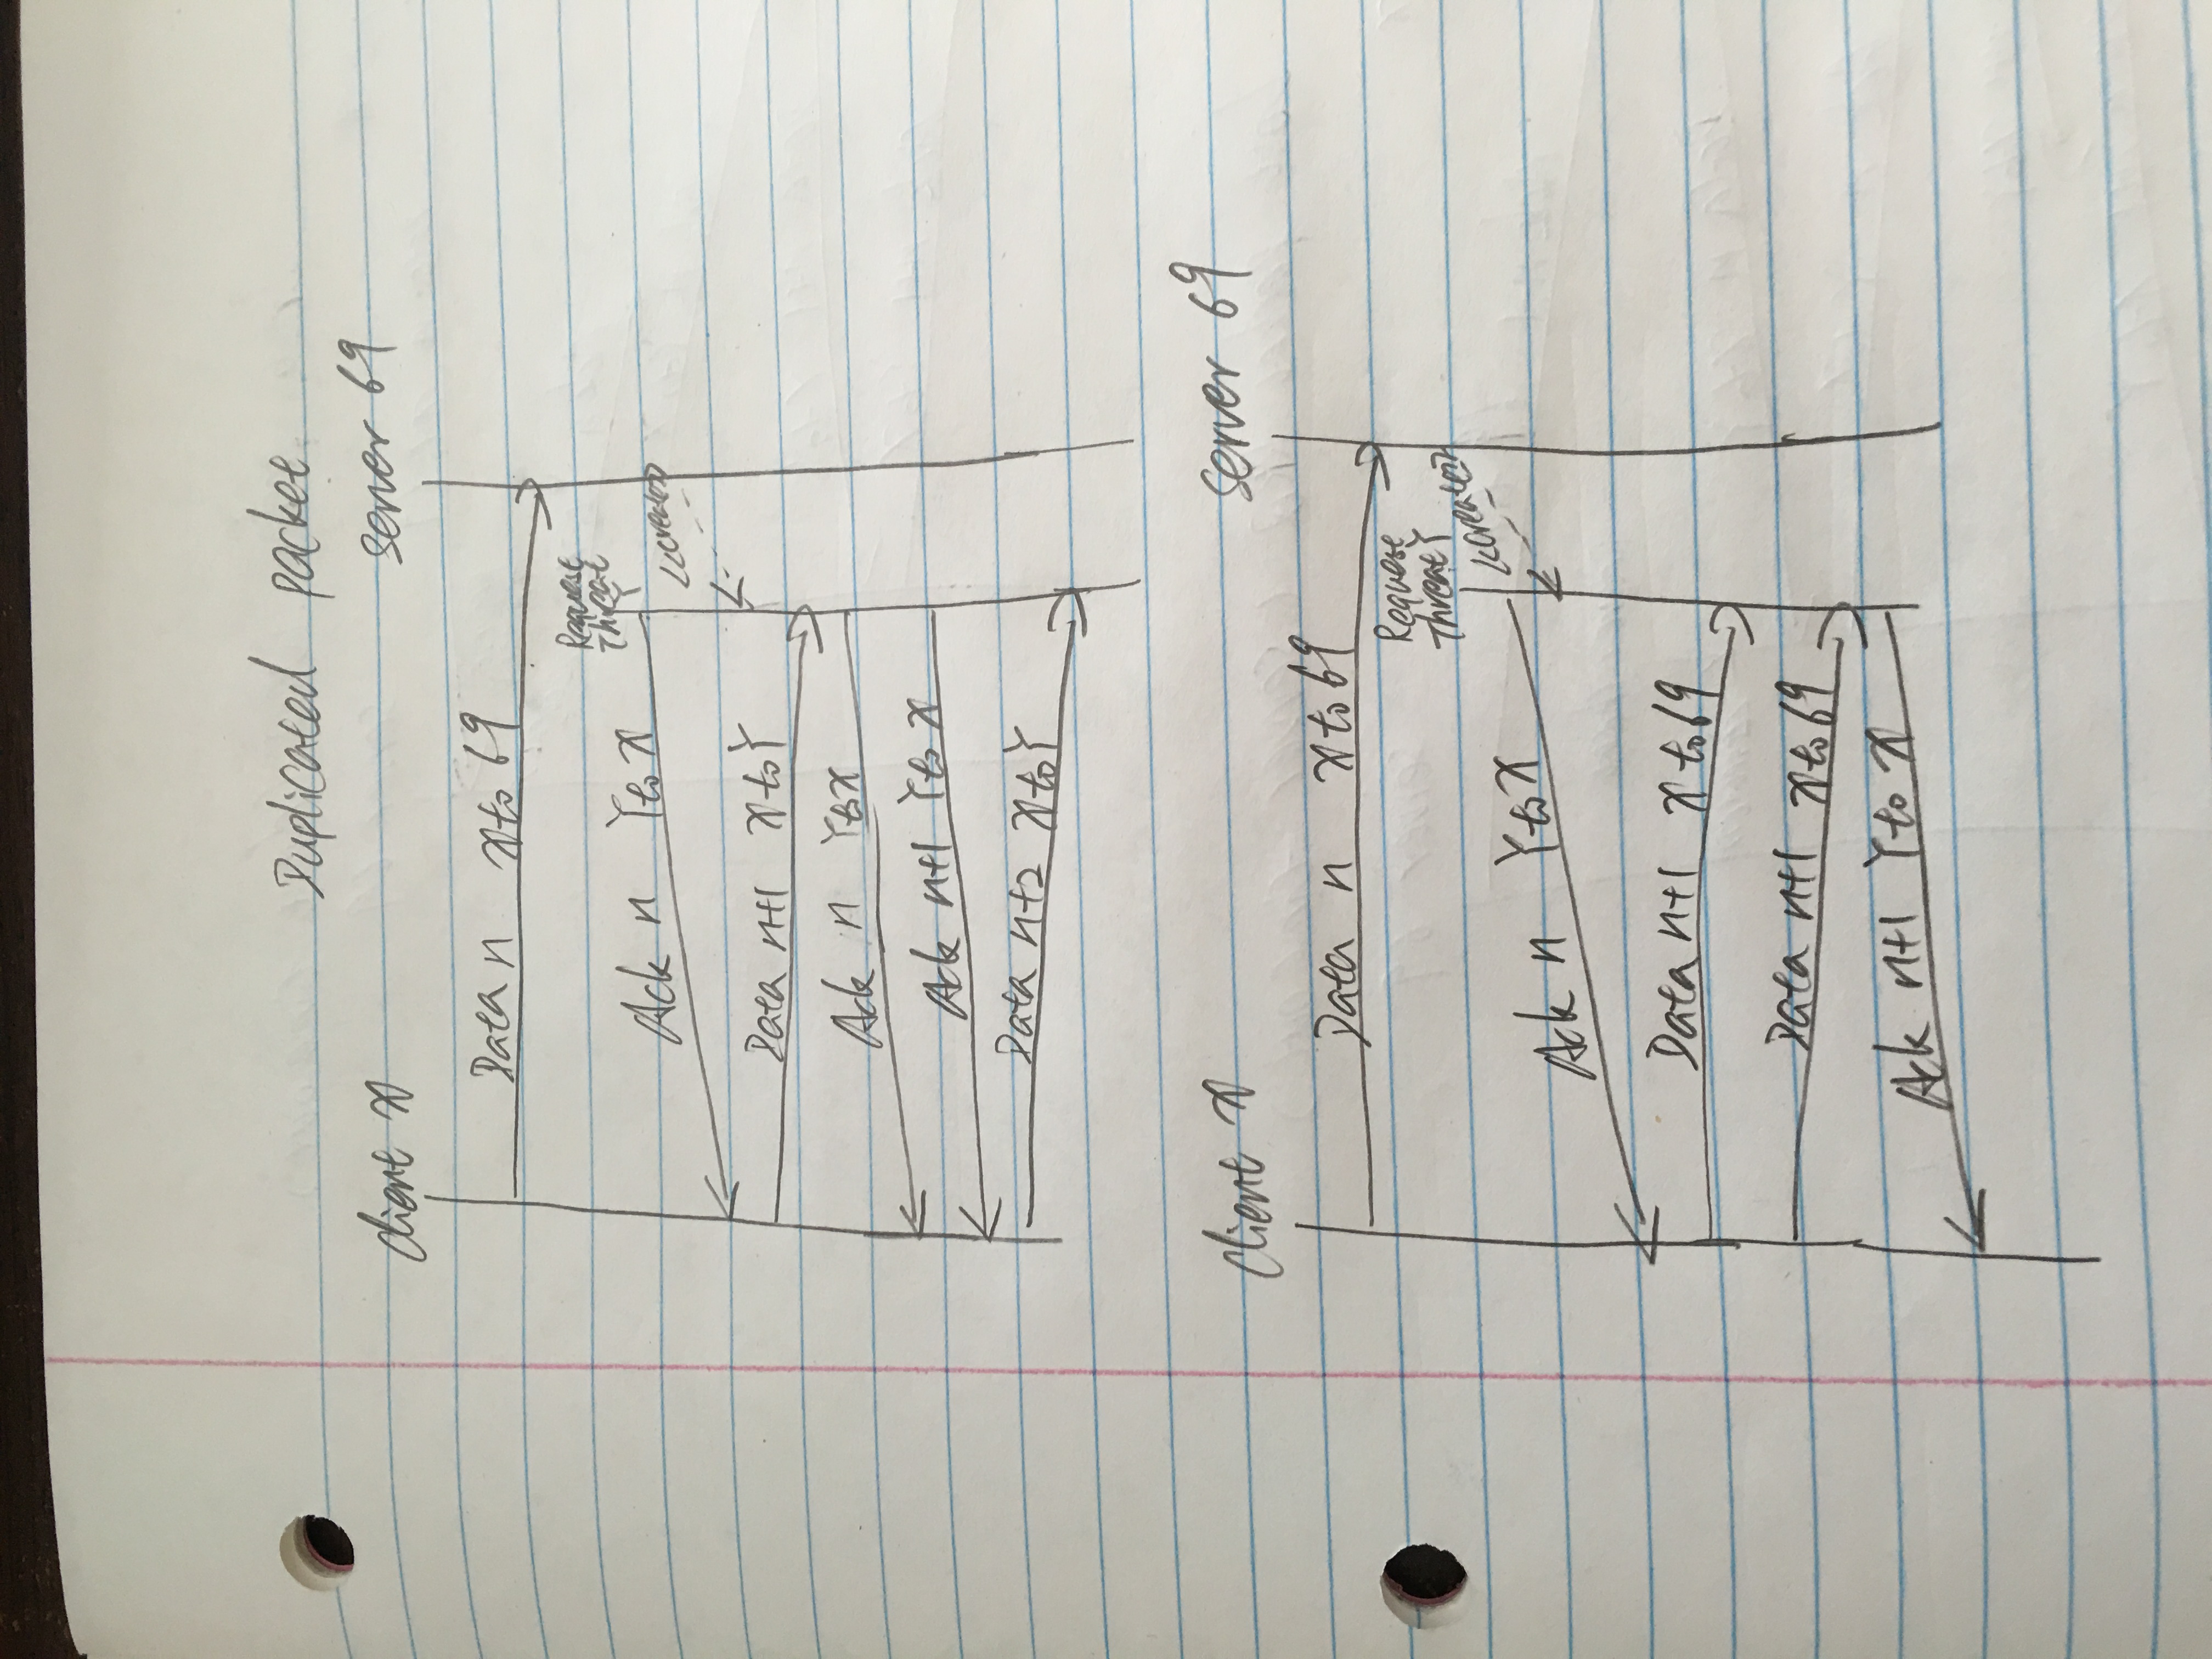 Duplicated packet
client X server 69
Data n X to 69
Request
Threat
Y
Ack n Y to X
<<create>>
Data n+1 X to Y
Ack n Y to X
Ack n+1 Y to X
Data n+2 X to Y
client X server 69
Data n X to 69
Request
Threat Y
<<create>>
Ack n Y to X
Data n+1 X to 69
Data n+1 X to 69
Ack n+1 Y to X